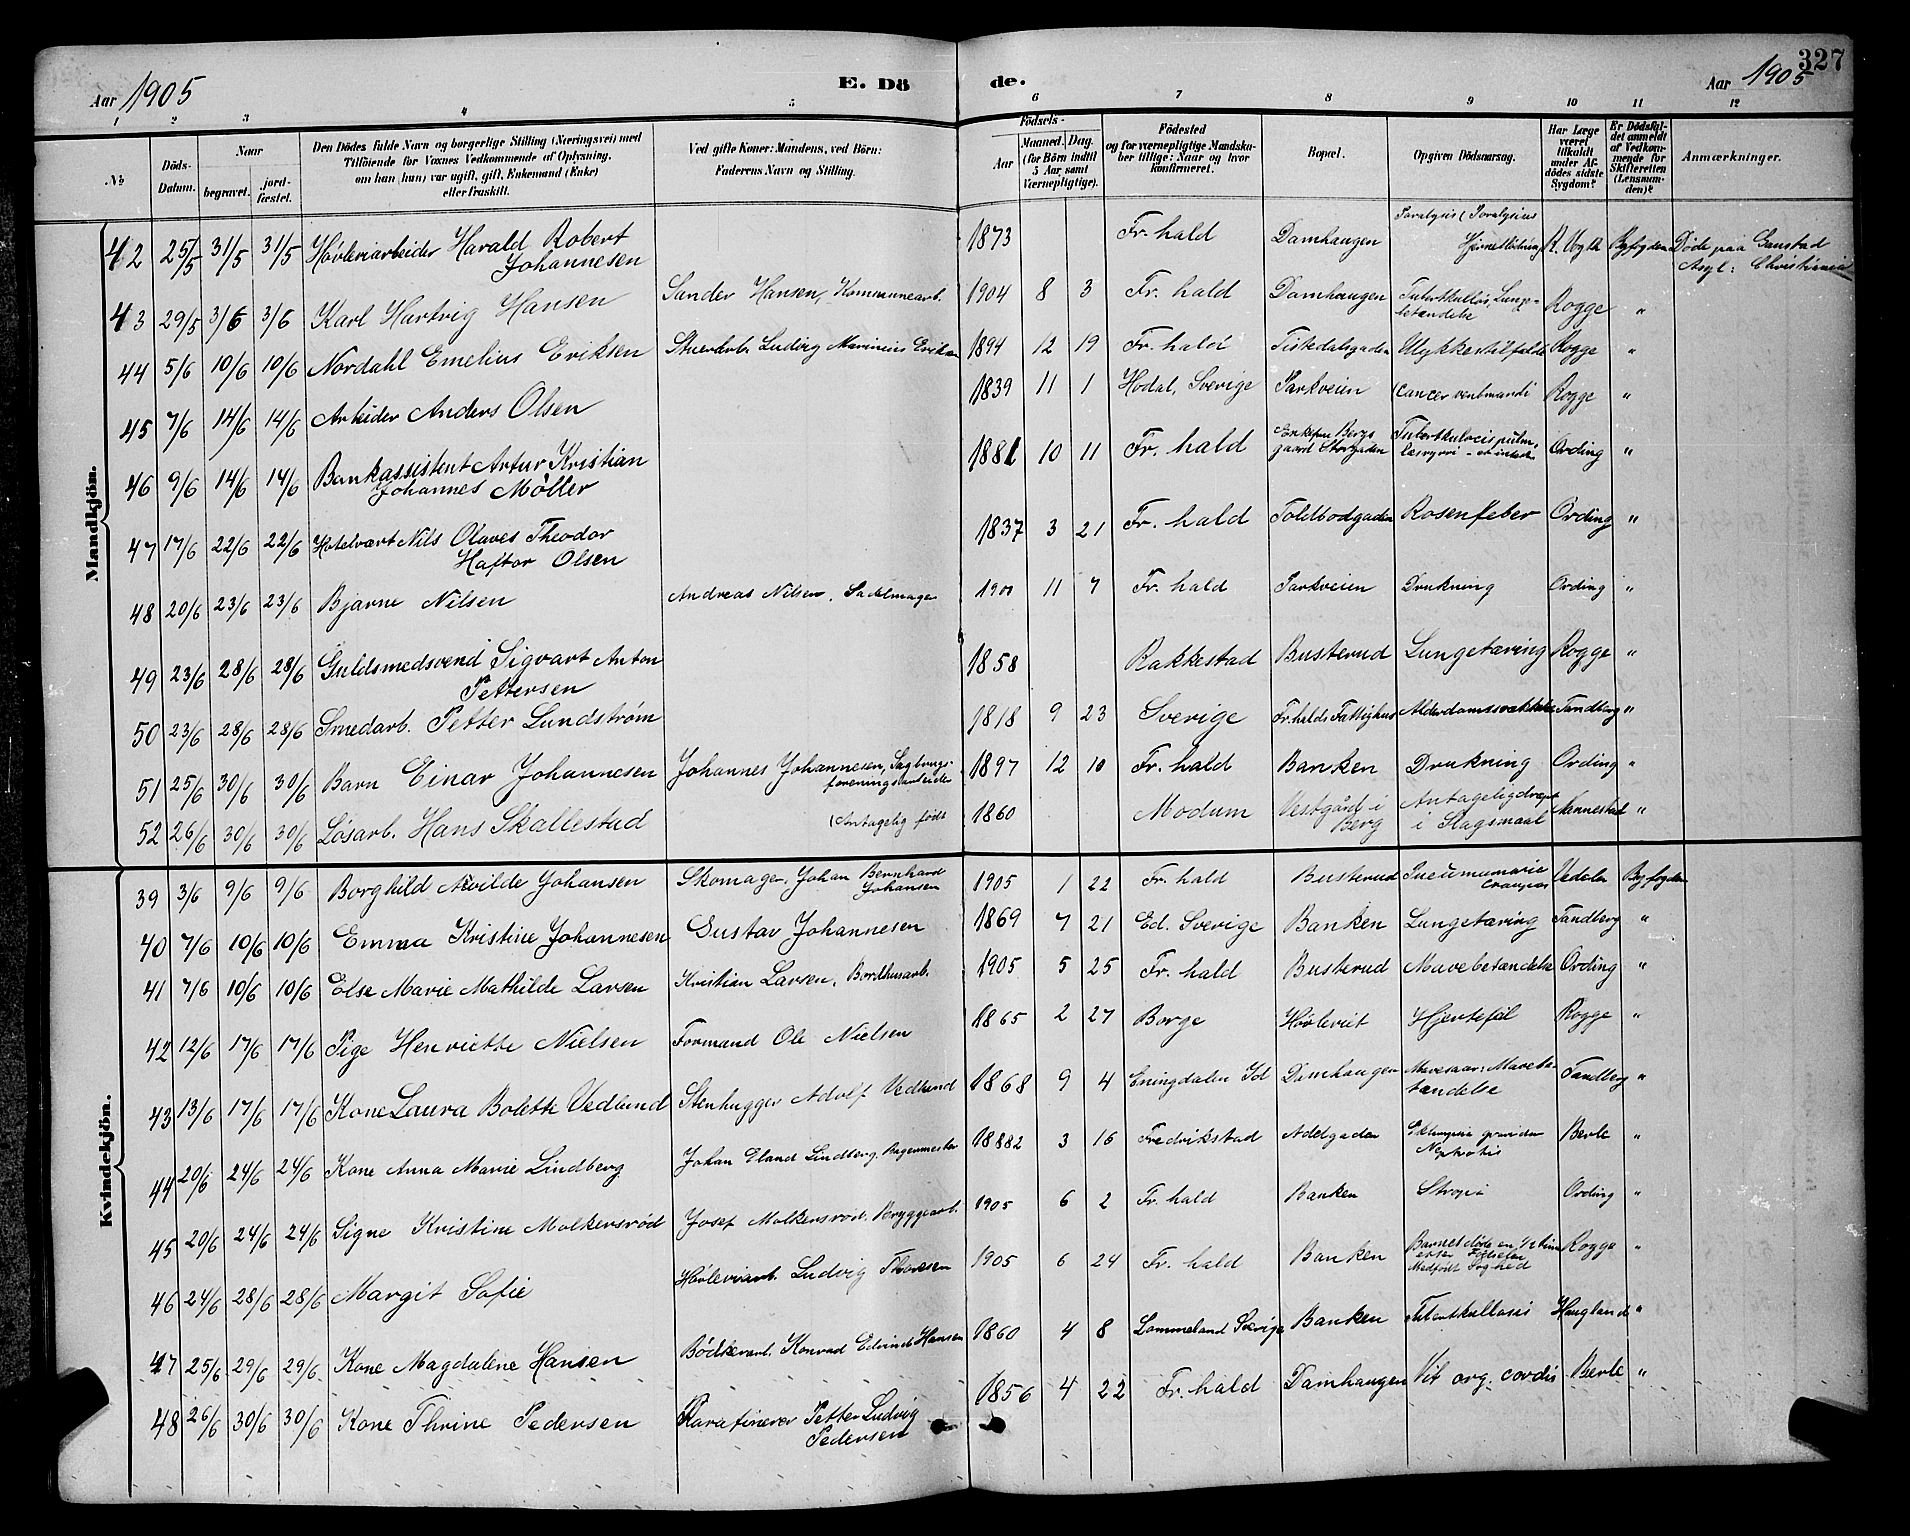 327
Aar 1905
E. Dö de.
Aar 1905
1 2 3 4 5 6 7 8 9 10 11 12
№
Döds-Datum.
Naar begravet. jord-fæstet.
Den Dödes fulde Navn og borgerlige Stilling (Næringsvei) med Tilföiende for Voxnes Vedkommende af Oplysning, om han (hun) var ugift, gift, Enkemand (Enke) eller fraskilt.
Ved gifte Koner: Mandens, ved Börn: Faderens Navn og Stilling.
Födsels-
Aar Maaned. Dag. (for Börn indtil 5 Aar samt Værnepligtige).
Födested og for værnepligtige Mandskaber tillige: Naar og hvor konfirmeret.
Bopæl.
Opgiven Dödsaarsag.
Har Læge været tilkaldt under Afdödes sidste Sygdom?
Er Dödsfaldet anmeldt af Vedkommende for Skifteretten (Lensmanden)?
Anmærkninger.
Mandkjön.
42 25/5 31/5 31/5 Høvleriarbeider Harald Robert Johannesen 1873 Fr. hald Damhaugen Paralysis Byfogden Døde paa Gaustad Asyl: Christiania
43 29/5 3/6 3/6 Karl Hartvig Hansen Sander Hansen, Kommunearb. 1904 8 3 Fr. hald Damhaugen Tuberkuløs Lungebetændelse Rogge "
44 5/6 10/6 10/6 Nordahl Emelius Eriksen Stuerarb. Ludvig Marinius Eriksen 1894 12 19 Fr. hald Tistedalsgaden Ulykkestilfælde Rogge "
45 7/6 14/6 14/6 Arbeider Anders Olsen 1839 11 1 Hodal, Sverige Parkveien Cancer ventriculi Rogge "
46 9/6 14/6 14/6 Bankassistent Artur Kristian Johannes Møller 1881 10 11 Fr. hald Storgaden Ording "
47 17/6 22/6 22/6 Hotelvært Nils Olaves Theodor Haftor Olsen 1837 3 21 Fr. hald Toldbodgaden Rosenfeber Ording "
48 20/6 23/6 23/6 Bjarne Nilsen Andreas Nilsen, Sadelmager 1900 11 7 Fr. hald Parkveien Drukning Ording "
49 23/6 28/6 28/6 Guldsmedsvend Sigvart Anton Pettersen 1858 Rakkestad Busterud Lungetæring Rogge "
50 23/6 28/6 28/6 Smedarb. Petter Lundstrøm 1818 9 23 Sverige Fr.halds Fattighus Alderdomssvakhed Tandberg "
51 25/6 30/6 30/6 Barn Einar Johannesen Johannes Johannesen, Sagbrugsforeningsarbeider 1897 12 10 Fr. hald Banken Drukning Ording "
52 26/6 30/6 30/6 Løsarb. Hans Skallestad (Antagelig født 1860 Modum Vestgård i Berg Antagelig dræpt i Slagsmaal Nannestad "
Kvindekjön.
39 3/6 9/6 9/6 Borghild Alvilde Johansen Skomager, Johan Bernhard Johansen 1905 1 22 Fr. hald Busterud Vedeler Byfogden
40 7/6 10/6 10/6 Emma Kristine Johannesen Gustav Johannesen 1869 7 21 Ed. Sverige Banken Lungetæring Tandberg "
41 7/6 10/6 10/6 Else Marie Mathilde Larsen Kristian Larsen, Bordhusarb. 1905 5 25 Fr. hald Busterud Mavebetændelse Ording "
42 12/6 17/6 17/6 Pige Henriette Nielsen Formand Ole Nielsen 1865 2 27 Borge Høvleriet Hjertefeil Rogge "
43 13/6 17/6 17/6 Kone Laura Bolette Vedlund Stenhugger Adolf Vedlund 1868 9 4 Eningdalen Id Damhaugen Mavesaar: Mavebetændelse Tandberg "
44 20/6 24/6 24/6 Kone Anna Marie Lindberg Johan Eland Lindberg, Bagermester 18882 3 16 Fredrikstad Adelgaden Berle "
45 20/6 24/6 24/6 Signe Kristine Molkersrød Josef Molkersrød, Bryggearb. 1905 6 2 Fr. hald Banken Ording "
46 24/6 28/6 28/6 Margit Sofie Høvleriarb. Ludvig Thoresen 1905 6 24 Fr. hald Banken Barnet døde en 1/2 time efter Fødselen Medfødt Svaghed Rogge "
47 25/6 29/6 29/6 Kone Magdalene Hansen Bødkerarb. Konrad Edvind Hansen 1860 4 8 Lommeland Sverige Banken Tuberkullosis Haugland "
48 26/6 30/6 30/6 Kone Thrine Pedersen Parafinerer Petter Ludvig Pedersen 1856 4 22 Fr. hald Damhaugen Vit. org. cordis Berle "